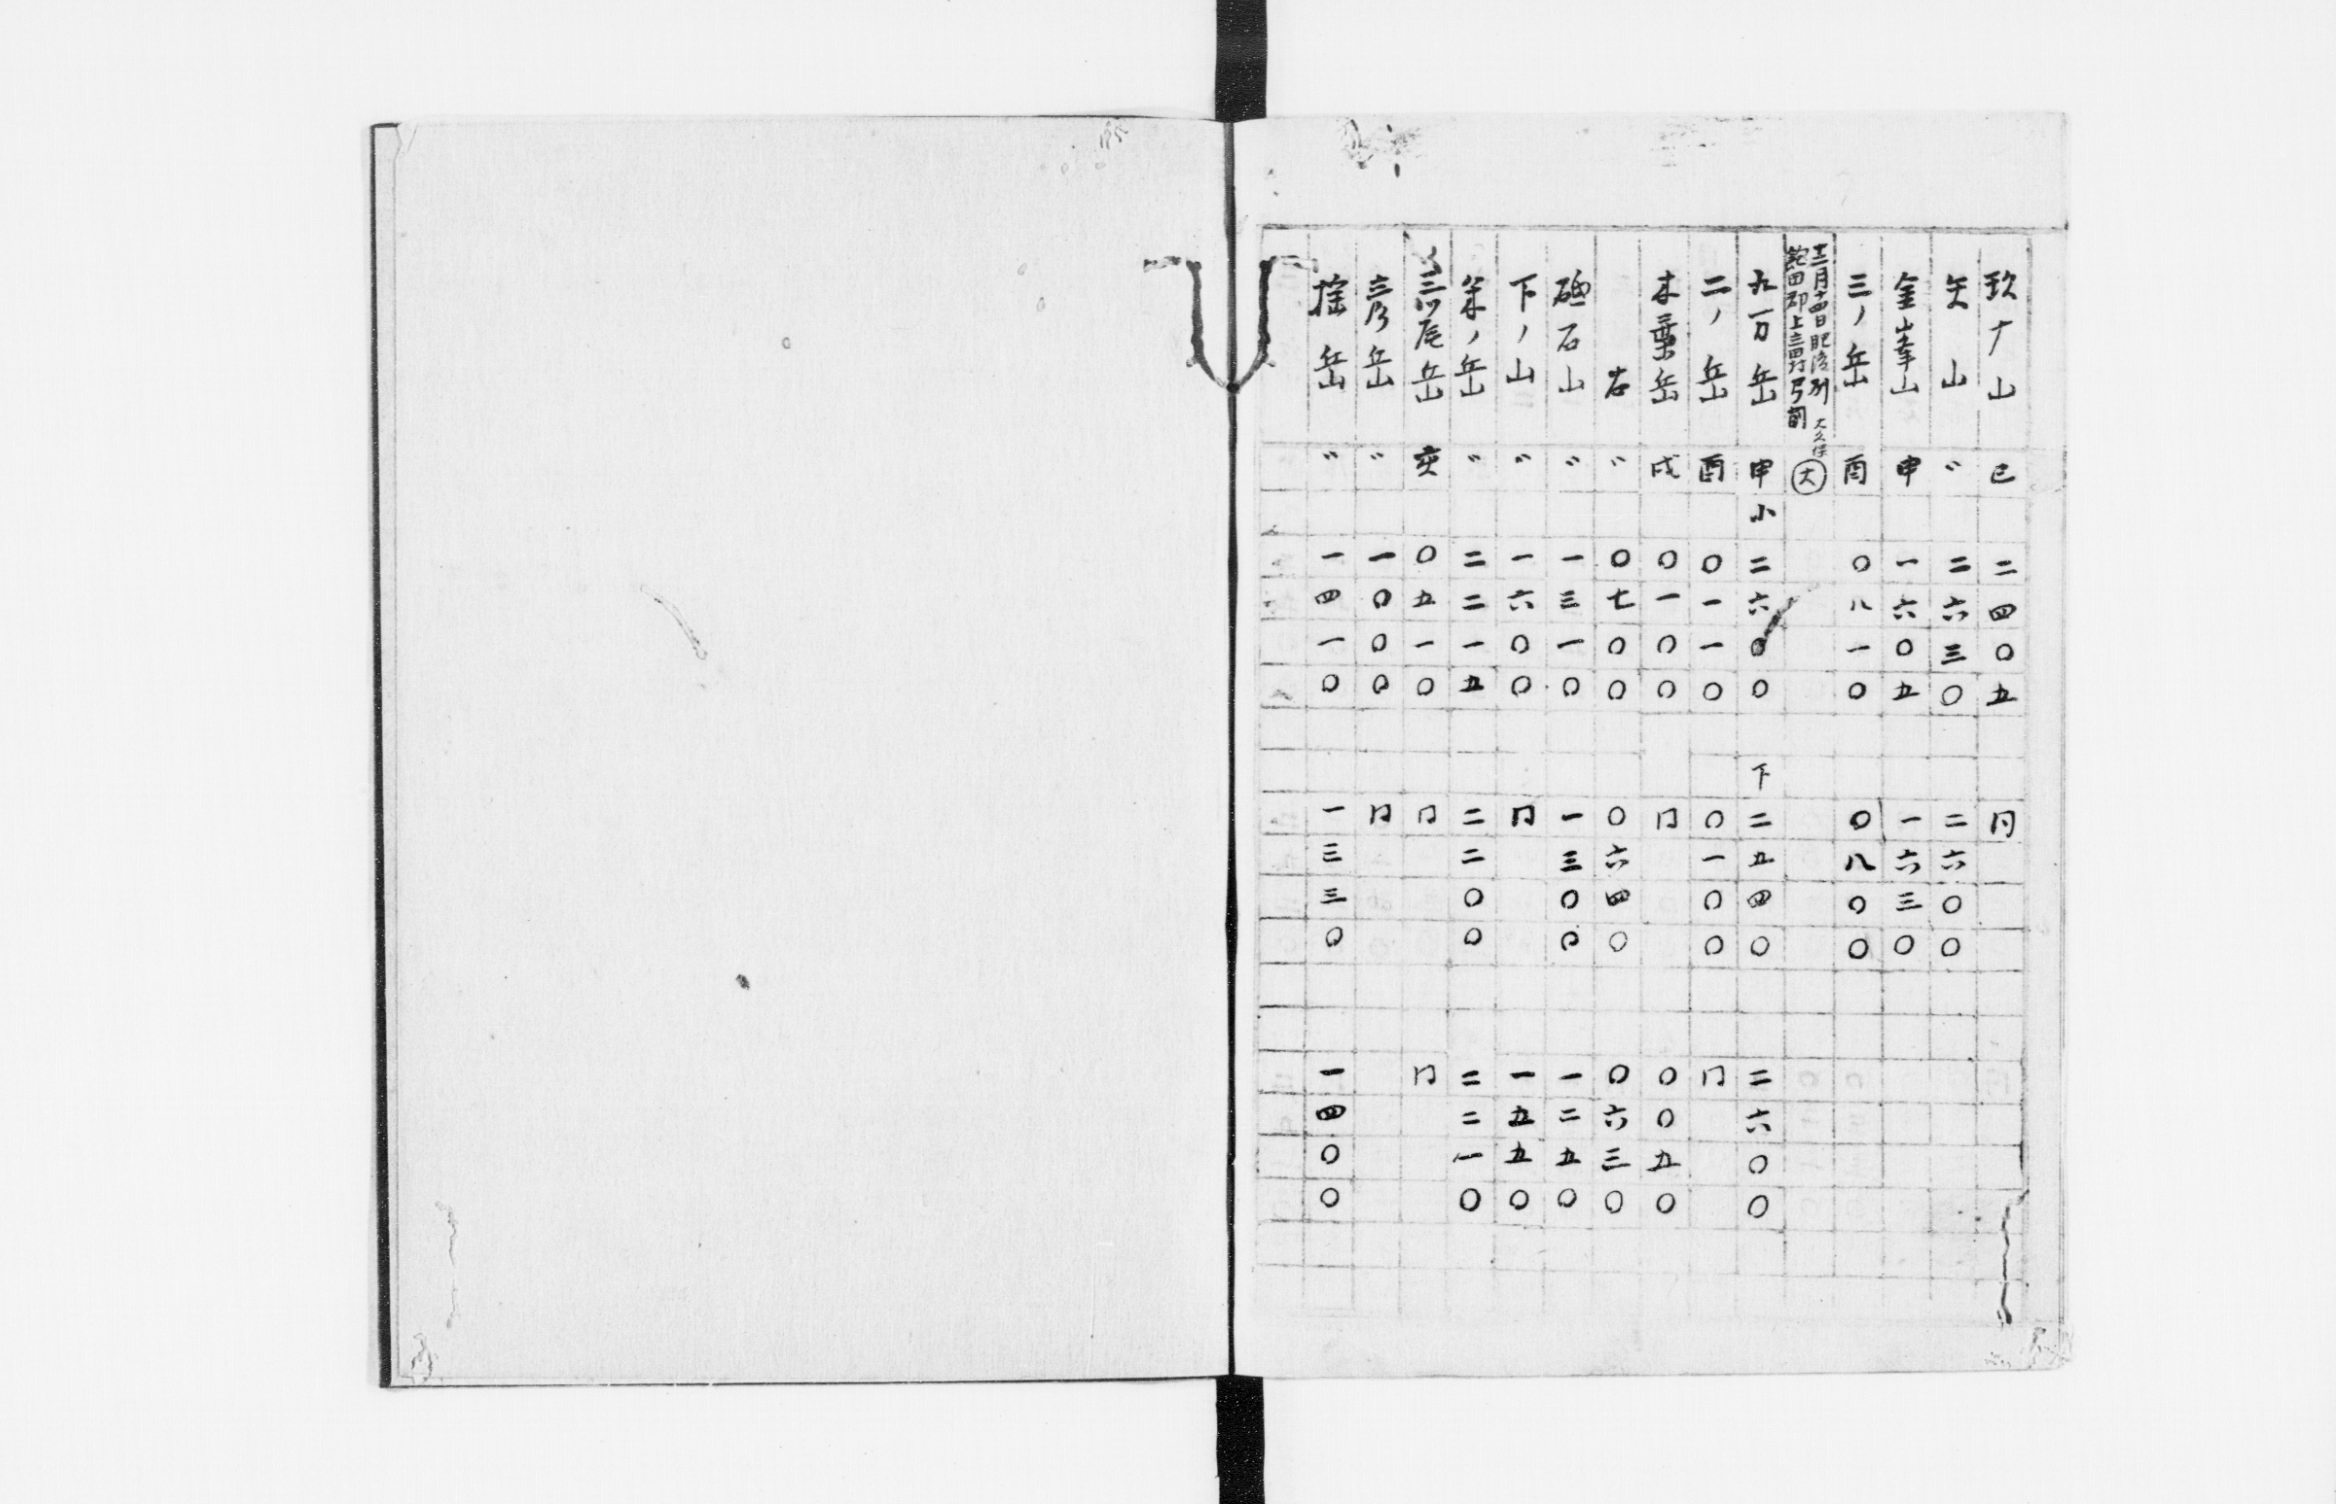 山 巳 二四〇五 同
矢山 〃 二六三〇 二六〇〇
金峯山 申 一六〇五 一六三〇
三ノ岳 酉 〇八一〇 〇八〇〇
十二月十四日肥後州 大久保
飽田郡上三田村弓削 大
九万岳 申小 二六〇〇 下 二五四〇 二六〇〇
二ノ岳 酉 〇一一〇 〇一〇〇 同
木葉岳 戌 〇一〇〇 同 〇〇五〇
岩 〃 〇七〇〇 〇六四〇 〇六三〇
砥石山 〃 一三一〇 一三〇〇 一二五〇
下ノ山 〃 一六〇〇 同 一五五〇
ノ岳 〃 二二一五 二二〇〇 二二一〇
三ツ尾岳 亥 〇五一〇 同 同
岳 〃 一〇〇〇 同
岳 〃 一四一〇 一三三〇 一四〇〇